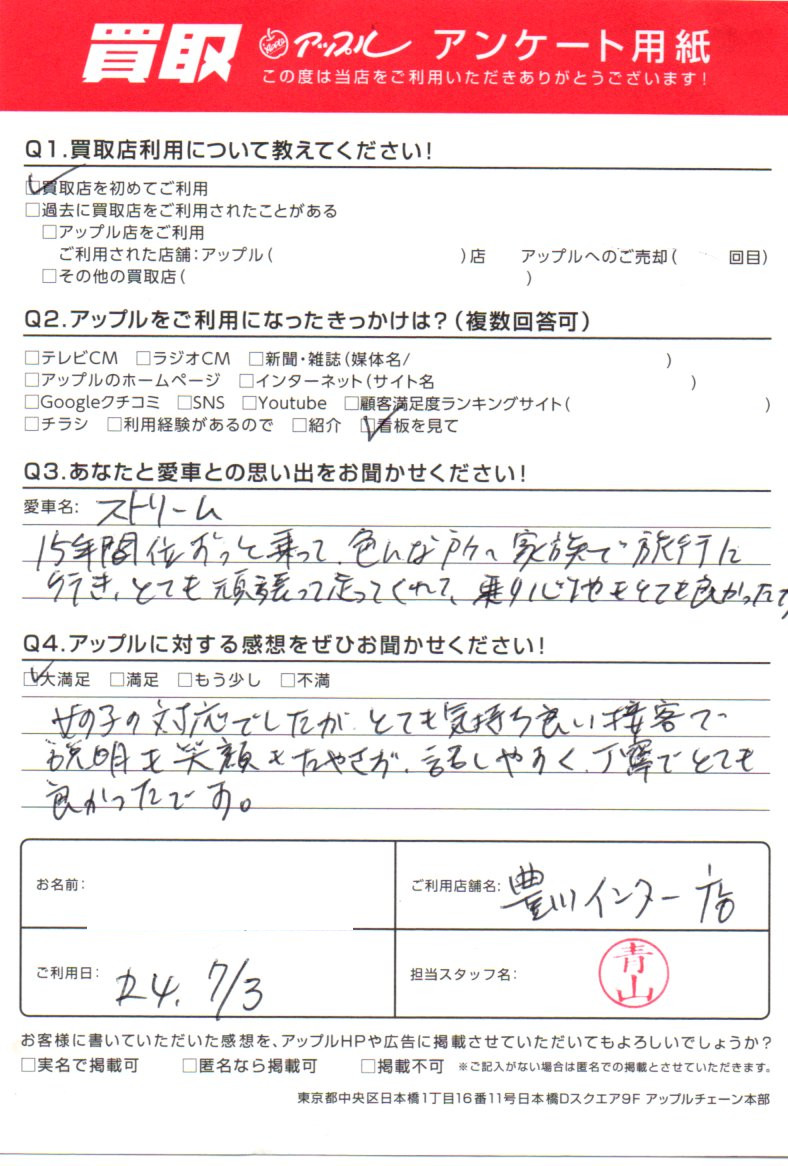 買取 アップル アンケート用紙
この度は当店をご利用いただきありがとうございます!
Q1.買取店利用について教えてください!
☑買取店を初めてご利用
□過去に買取店をご利用されたことがある
□アップル店をご利用
ご利用された店舗:アップル( )店 アップルへのご売却( 回目)
□その他の買取店( )
Q2.アップルをご利用になったきっかけは?(複数回答可)
□テレビCM □ラジオCM □新聞・雑誌(媒体名/ )
□アップルのホームページ □インターネット(サイト名 )
□Googleクチコミ □SNS □Youtube □顧客満足度ランキングサイト( )
□チラシ □利用経験があるので □紹介 ☑看板を見て
Q3.あなたと愛車との思い出をお聞かせください!
愛車名: ストリーム
15年間位ずっと乗って、色んな所へ家族で旅行に
行き、とても頑張って走ってくれて、乗り心地もとても良かったです
Q4.アップルに対する感想をぜひお聞かせください!
☑大満足 □満足 □もう少し □不満
女の子の対応でしたが、とても気持ち良い接客で
説明も笑顔もたやさず、話しやすく、丁寧でとても
良かったです。
お名前:
ご利用店舗名: 豊川インター店
ご利用日: R4. 7/3
担当スタッフ名: 青山
お客様に書いていただいた感想を、アップルHPや広告に掲載させていただいてもよろしいでしょうか?
□実名で掲載可 □匿名なら掲載可 □掲載不可 ※ご記入がない場合は匿名での掲載とさせていただきます。
東京都中央区日本橋1丁目16番11号日本橋Dスクエア9F アップルチェーン本部